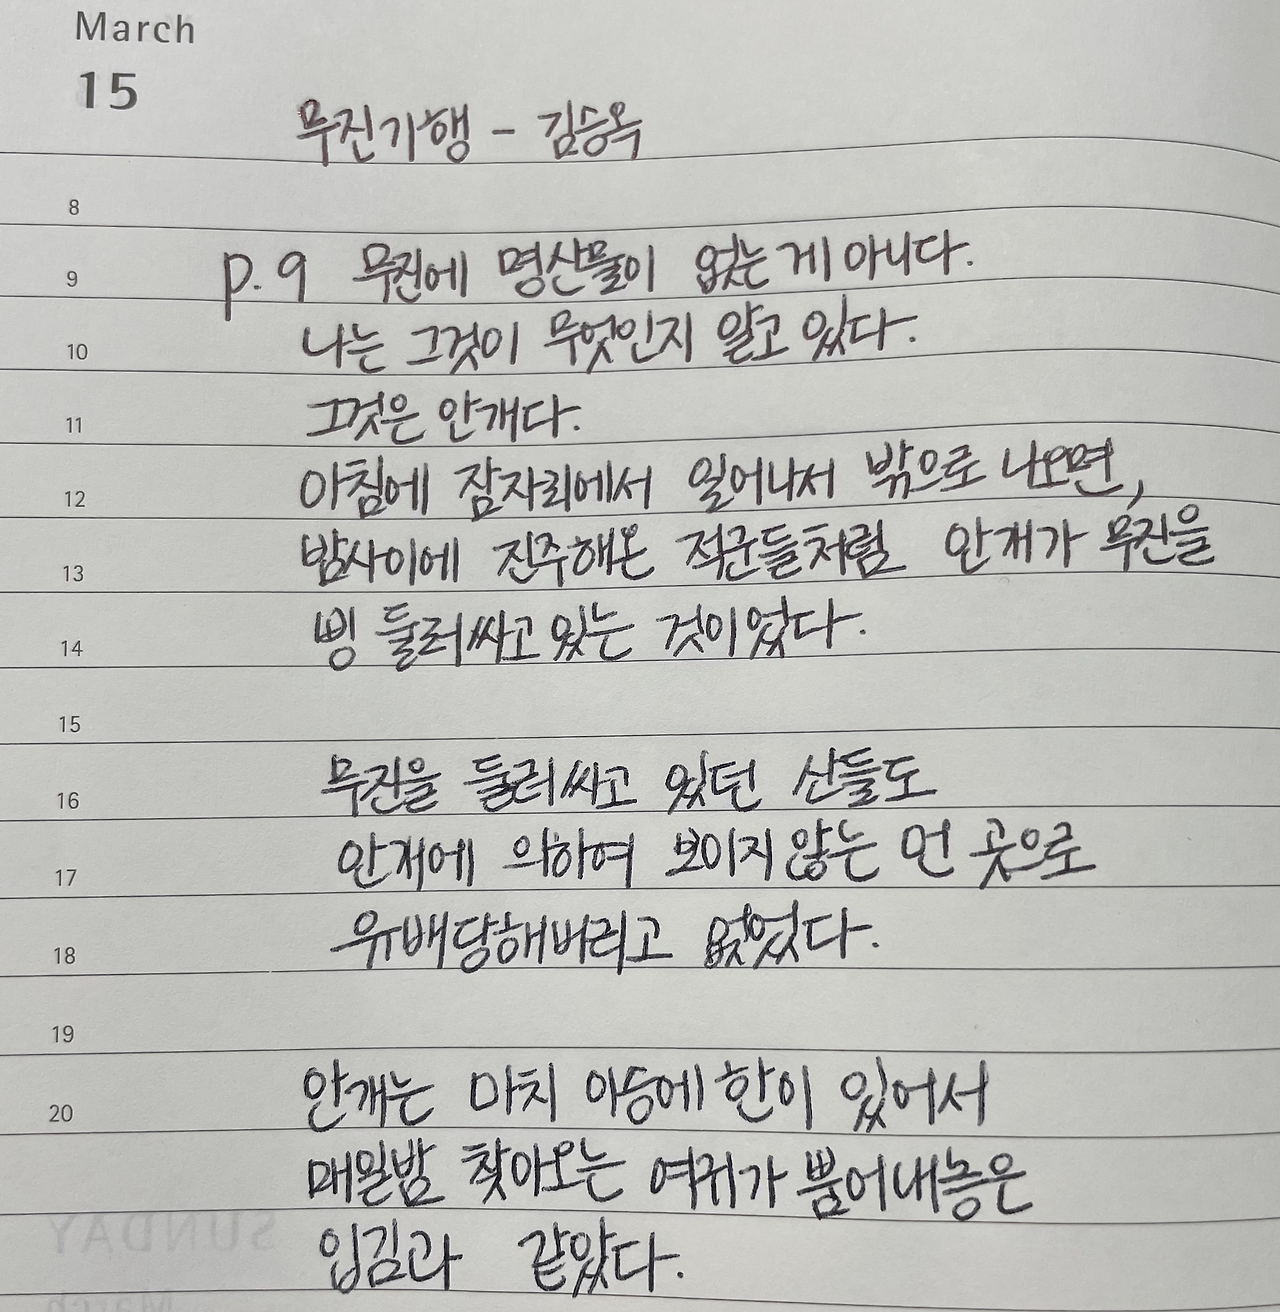 March
15
무진기행 - 김승옥
8
9 p.9 무진에 명산물이 없는 게 아니다.
10 나는 그것이 무엇인지 알고 있다.
11 그것은 안개다.
12 아침에 잠자리에서 일어나서 밖으로 나오면,
13 밤사이에 진주해온 적군들처럼 안개가 무진을
14 삥 둘러싸고 있는 것이었다.
15
16 무진을 둘러싸고 있던 산들도
17 안개에 의하여 보이지 않는 먼 곳으로
18 유배당해버리고 없었다.
19
20 안개는 마치 이승에 한이 있어서
매일밤 찾아오는 여귀가 뿜어내놓은
입김과 같았다.
SUNDAY
March